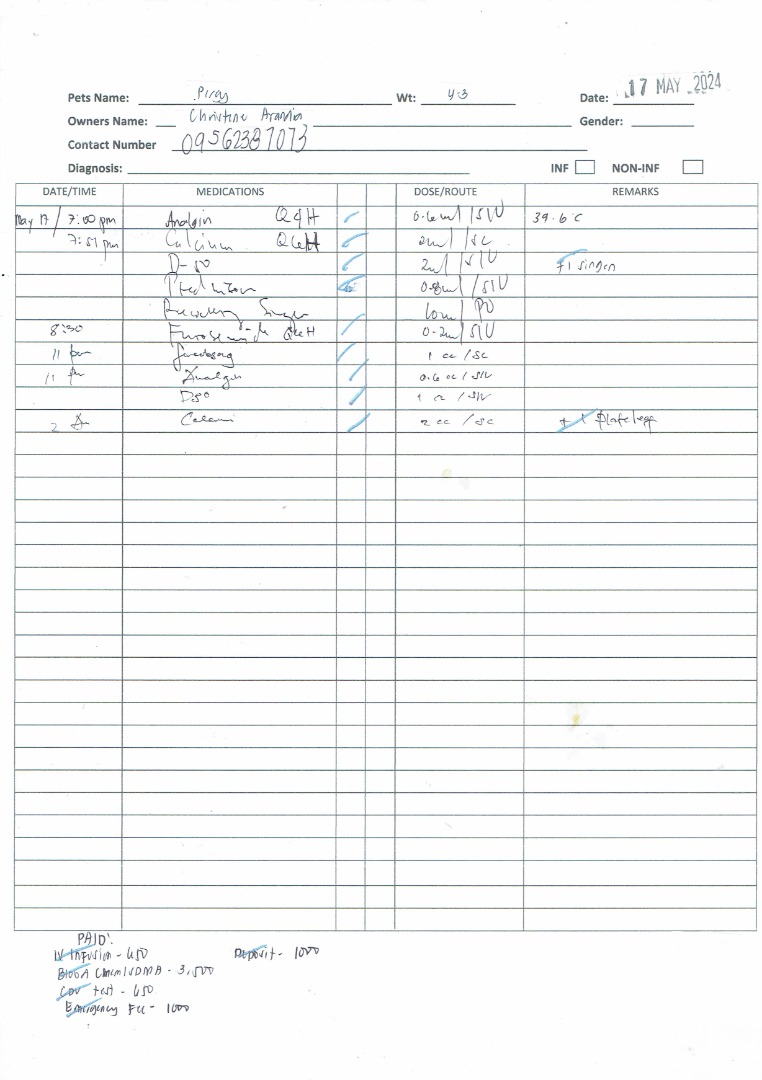 Pets Name: Piray Wt: 4.3 Date: 17 MAY 2024
Owners Name: Christine Gender:
Contact Number 09562387073
Diagnosis: INF NON-INF
DATE/TIME MEDICATIONS DOSE/ROUTE REMARKS
May 17 / 7:00 pm Analgin Q4H 0.6ml /SIV 39.6°C
7:51 pm Calcium Q6H 2ml /SC
D-50 2ml /SIV
0.8ml /SIV
Recovery 10ml PO
8:30 Furosemide Q6H 0.2ml SIV
11 pm 1 cc /SC
11 pm Analgin 0.6 cc /SIV
D50 1 cc /SIV
2 2 cc /SC
PAID:
IV Infusion - 650 Deposit - 1000
Blood Chem/SDMA - 3,500
CDV test - 650
Emergency Fee - 1000